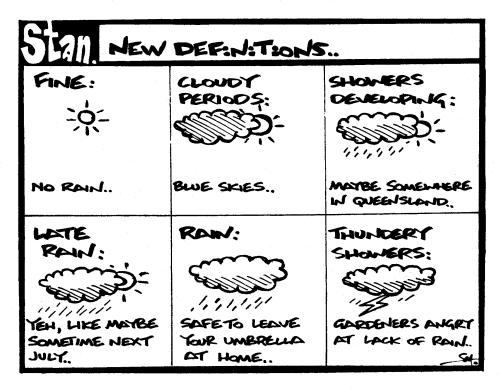 Stan. NEW DEFINITIONS..
FINE:
NO RAIN..
CLOUDY
PERIODS:
BLUE SKIES..
SHOWERS
DEVELOPING:
MAYBE SOMEWHERE
IN QUEENSLAND..
LATE
RAIN:
YEH, LIKE MAYBE
SOMETIME NEXT
JULY..
RAIN:
SAFE TO LEAVE
YOUR UMBRELLA
AT HOME..
THUNDERY
SHOWERS:
GARDENERS ANGRY
AT LACK OF RAIN..